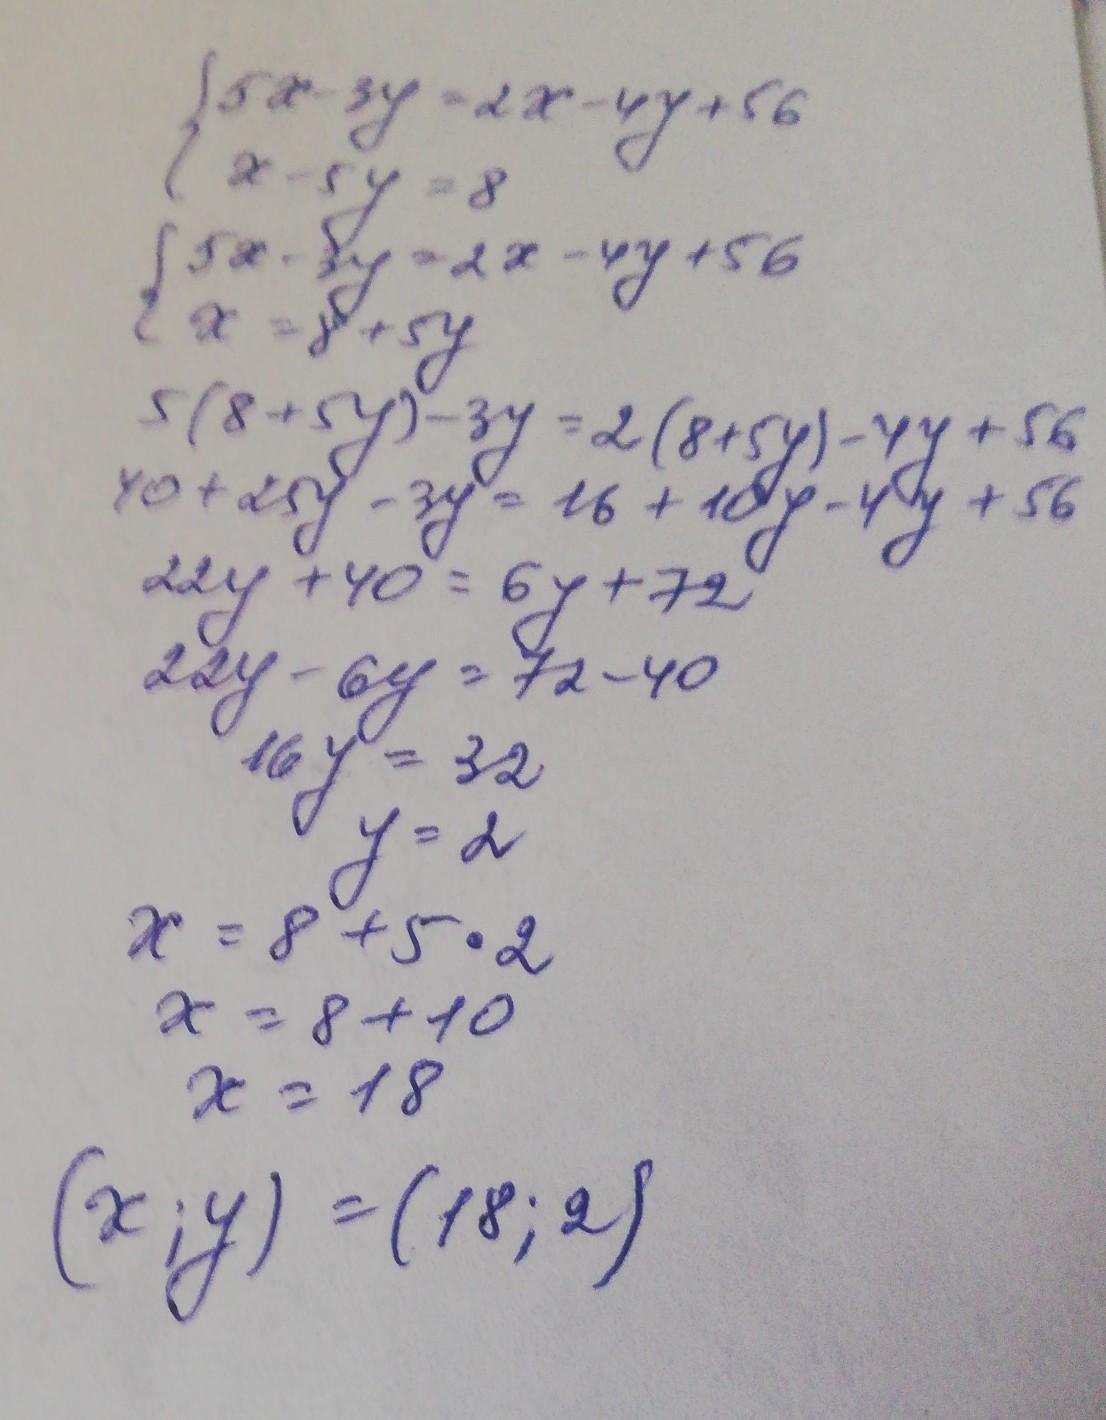 {5x-3y=2x-4y+56
x-5y=8
{5x-3y=2x-4y+56
x=8+5y
5(8+5y)-3y=2(8+5y)-4y+56
40+25y-3y=16+10y-4y+56
22y+40=6y+72
22y-6y=72-40
16y=32
y=2
x=8+5•2
x=8+10
x=18
(x;y)=(18;2)